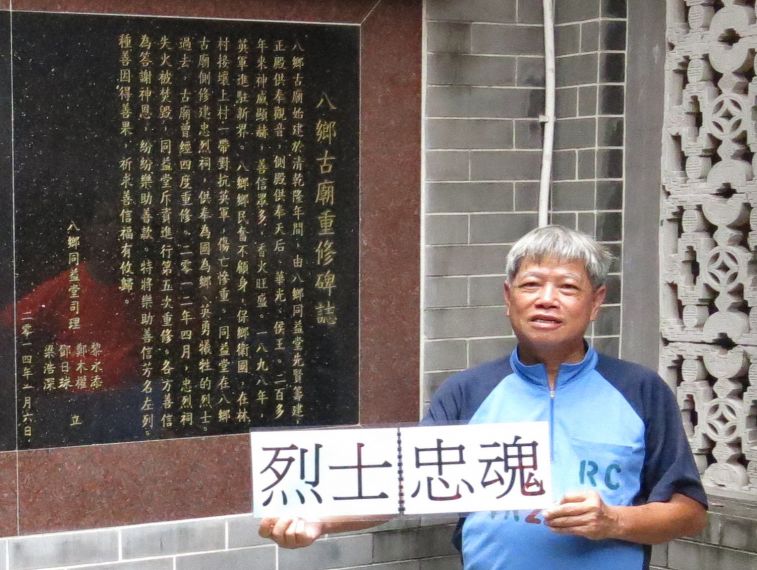 八鄉古廟重修碑誌
八鄉古廟始建於清乾隆年間，由八鄉同益堂先賢籌建，
正殿供奉觀音，側殿供奉天后，華光，侯王，二百多
年來神威顯赫，善信眾多，香火旺盛。一八九八年，
英軍進駐新界。八鄉鄉民奮不顧身，保鄉衛國，在林
村接壤上村一帶對抗英軍，傷亡慘重，同益堂在八鄉
古廟側修建忠烈祠，供奉為國為鄉，英勇犧牲的烈士。
過去，古廟曾經四度重修。二零一二年四月，忠烈祠
失火被焚毀，同益堂斥資進行第五次重修。各方善信
為答謝神恩，紛紛樂助善款，特將樂助善信芳名左列。
種善因得善果，祈求善信福有攸歸。
八鄉同益堂司理
黎永添
鄭木權
鄧日珠
梁浩深
立
二零一四年一月六日
烈士忠魂
RC